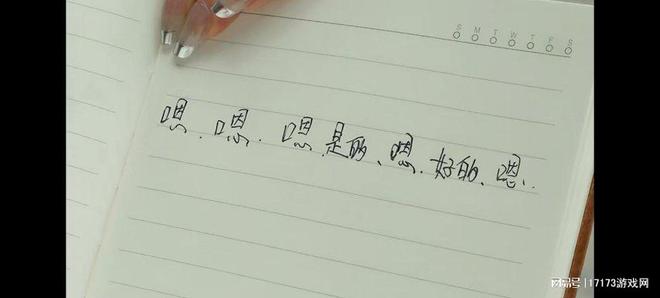 S M T W T F S
嗯、嗯、嗯是的、嗯、好的、嗯、
网易号 | 17173游戏网